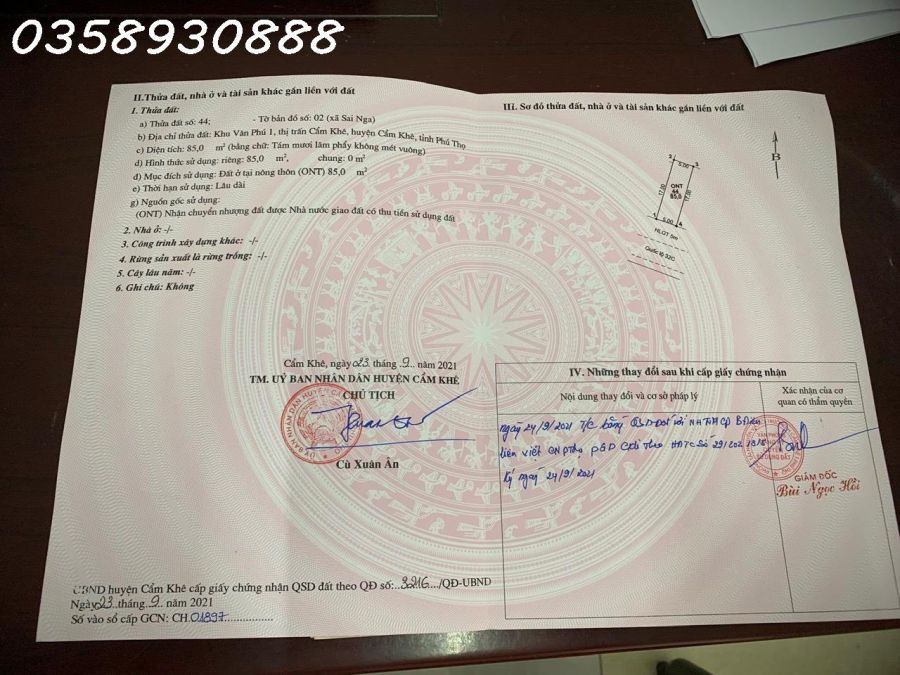 0358930888
II.Thửa đất, nhà ở và tài sản khác gắn liền với đất
1. Thửa đất:
a) Thửa đất số: 44; - Tờ bản đồ số: 02 (xã Sai Nga)
b) Địa chỉ thửa đất: Khu Văn Phú 1, thị trấn Cẩm Khê, huyện Cẩm Khê, tỉnh Phú Thọ
c) Diện tích: 85,0 m², (bằng chữ: Tám mươi lăm phẩy không mét vuông)
d) Hình thức sử dụng: riêng: 85,0 m², chung: 0 m²
đ) Mục đích sử dụng: Đất ở tại nông thôn (ONT) 85,0 m²
e) Thời hạn sử dụng: Lâu dài
g) Nguồn gốc sử dụng:
(ONT) Nhận chuyển nhượng đất được Nhà nước giao đất có thu tiền sử dụng đất
2. Nhà ở: -/-
3. Công trình xây dựng khác: -/-
4. Rừng sản xuất là rừng trồng: -/-
5. Cây lâu năm: -/-
6. Ghi chú: Không
Cẩm Khê, ngày 23 tháng 9 năm 2021
TM. UỶ BAN NHÂN DÂN HUYỆN CẨM KHÊ
CHỦ TỊCH
Cù Xuân Ân
UBND huyện Cẩm Khê cấp giấy chứng nhận QSD đất theo QĐ số: 3216 /QĐ-UBND
Ngày 23 tháng 9 năm 2021
Số vào sổ cấp GCN: CH.01897
III. Sơ đồ thửa đất, nhà ở và tài sản khác gắn liền với đất
B
2 5,00 3
17,00 ONT 44 85,0 17,00
1 5,00 4
HLGT 5m
Quốc lộ 32C
IV. Những thay đổi sau khi cấp giấy chứng nhận
Nội dung thay đổi và cơ sở pháp lý
Xác nhận của cơ quan có thẩm quyền
ngày 24/9/2021 T/C bằng QSD đất với NHTMCP Bưu
liên việt CN Phú PGD theo HĐTC số 29/2021
ký ngày 24/9/2021
GIÁM ĐỐC
Bùi Ngọc Hồi